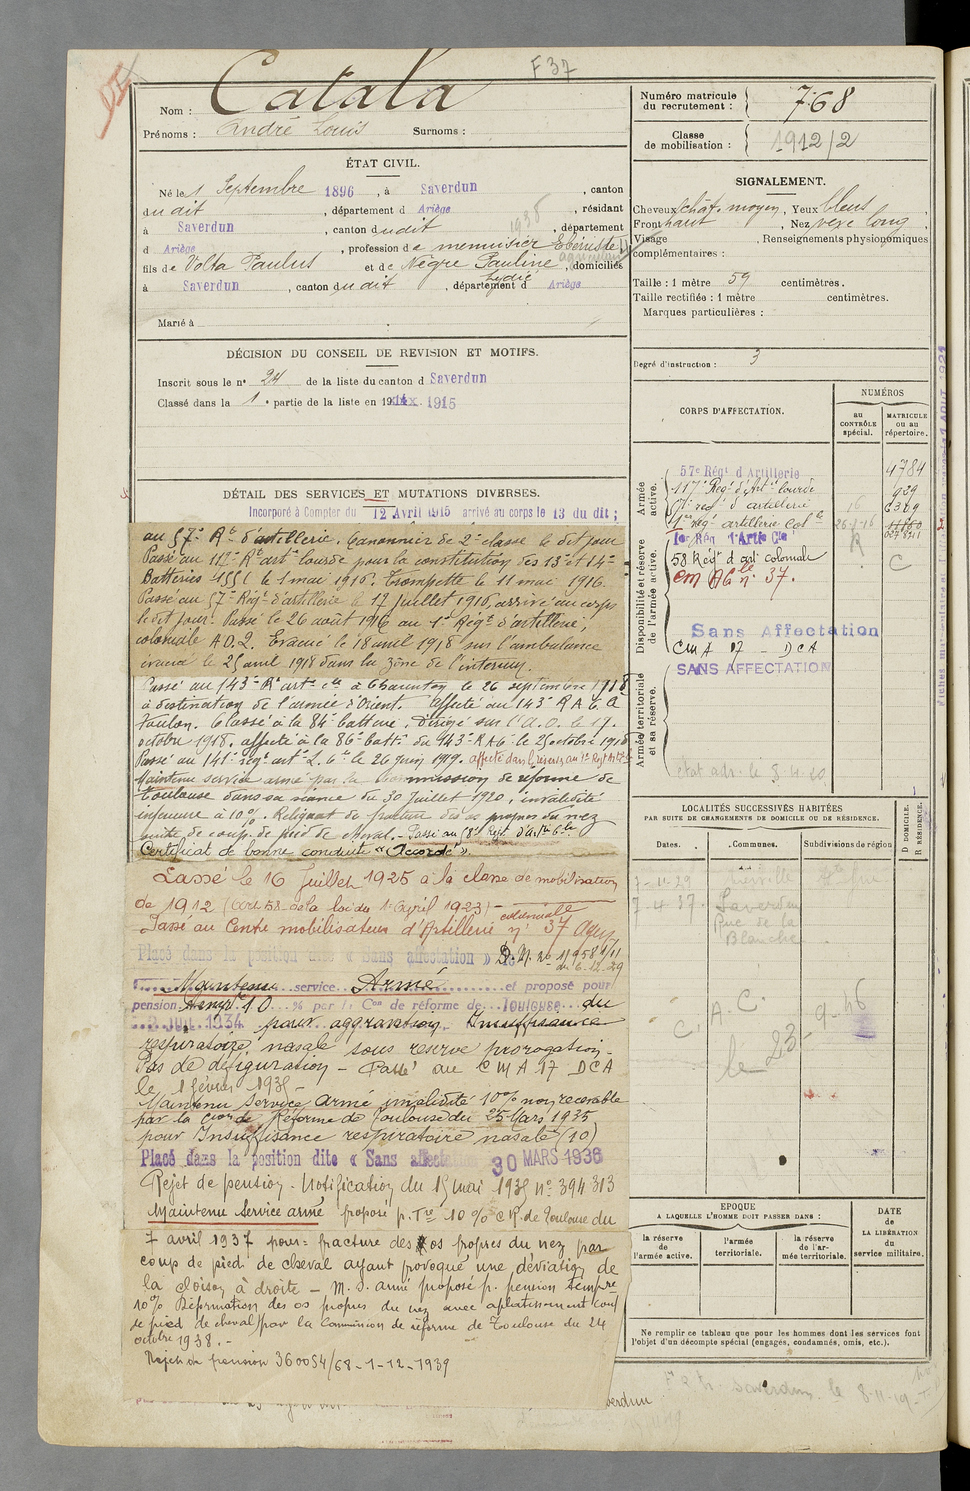 F 37
Nom : Catala
Prénoms : André Louis Surnoms :
ÉTAT CIVIL.
Né le 1 Septembre 1896, à Saverdun, canton
dudit, département d Ariège, résidant
à Saverdun, canton dudit, département
d Ariège, profession de menuisier Ebéniste
fils de Volta Paulus et de Nègre Pauline Lydie, domiciliés
à Saverdun, canton dudit, département d Ariège
Marié à
DÉCISION DU CONSEIL DE REVISION ET MOTIFS.
Inscrit sous le n° 24 de la liste du canton d Saverdun
Classé dans la 1e partie de la liste en 1915
DÉTAIL DES SERVICES ET MUTATIONS DIVERSES.
Incorporé à Compter du 12 Avril 1915 arrivé au corps le 13 du dit ;
au 57e Rt d'artillerie. Canonnier de 2e classe le dit jour
Passé au 117e Rt art lourde pour la constitution des 13e et 14e
Batteries le 1 mai 1916. Trompette le 11 mai 1916.
Passé au 57e Régt d'artillerie le 17 juillet 1916, arrivé au corps
le dit jour. Passé le 26 août 1916 au 1er Régt d'artillerie
coloniale A.D.2. Evacué le 18 avril 1918 sur l'ambulance
évacué le 25 avril 1918 dans la zone de l'intérieur.
Passé au 143e Rt art cle à Charenton le 26 septembre 1918
à destination de l'armée d'Orient. affecté au 143e R A C. à
Toulon. Classé à la 84e batterie. Dirigé sur l'A.O. le 17.
octobre 1918. affecté à la 86e battie du 143e R A C. le 25 octobre 1918
Passé au 141e régt art le 26 juin 1919. affecté dans la réserve au 1er Regt Artie
Maintenu service armé par la Commission de réforme de
Toulouse dans sa séance du 30 Juillet 1920, invalidité
inférieure à 10%. Reliquat de fracture des os propres du nez
suite de coup de pied de cheval. - Passé au 58e Regt d'Artie Cle
Certificat de bonne conduite « Accordé ».
Passé le 16 Juillet 1925 à la classe de mobilisation
de 1912 (Art 58 de la loi du 1er Avril 1923) -
Passé au Centre mobilisateur d'Artillerie coloniale n° 37 Agen
Placé dans la position dite « Sans affectation » D.M. n° 11958 1/11
du 6.12.29
Maintenu service Armé et proposé pour
pension temp 10 % par la Con de réforme de Toulouse du
3 JUIL 1934 pour aggravation. Insuffisance
respiratoire nasale sous réserve prorogation -
Pas de défiguration - Passé au C M A 17 DCA
le 1 février 1935 -
Maintenu Service Armé invalidité 10% non recevable
par la Cion de Réforme de Toulouse du 25 Mars 1935
pour Insuffisance respiratoire nasale (10)
Placé dans la position dite « Sans affectation 30 MARS 1936
Rejet de pension - Notification du 15 mai 1935 n° 394 313
Maintenu Service armé proposé p. Tre 10 % C R. de Toulouse du
7 avril 1937 pour : fracture des os propres du nez par
coup de pied de cheval ayant provoqué une déviation de
la cloison à droite - M. S. armé proposé p. pension tempre
10% Déformation des os propres du nez avec aplatissement coup
de pied de cheval par la Commission de réforme de Toulouse du 24
octobre 1938. -
Rejet de pension 360054/68-1-12-1939
Numéro matricule
du recrutement : 768
Classe
de mobilisation : 1912/2
SIGNALEMENT.
Cheveux chât. moyen, Yeux bleus,
Front haut, Nez long
Visage, Renseignements physionomiques
complémentaires :
Taille : 1 mètre 59 centimètres.
Taille rectifiée : 1 mètre centimètres.
Marques particulières :
Degré d'instruction : 3
CORPS D'AFFECTATION.
NUMÉROS
au
CONTRÔLE
spécial.
MATRICULE
ou au
répertoire.
Armée
active.
57e Régt d'Artillerie 4784
117e Régt d'Arti lourde 929
57e regt d'artillerie 16
1er regt artillerie Col
Disponibilité et réserve
de l'armée active.
58 Régt d'art coloniale
CM AC n° 37.
Sans Affectation
CMA 17 - DCA
Armée territoriale
et sa réserve.
SANS AFFECTATION
LOCALITÉS SUCCESSIVES HABITÉES
PAR SUITE DE CHANGEMENTS DE DOMICILE OU DE RÉSIDENCE.
Dates.
Communes.
Subdivisions de région
D DOMICILE.
R RÉSIDENCE.
7-11-29
7-4-37. Saverdun
Rue de la
Blanche
C. A. C.
le 23-9-46
EPOQUE
A LAQUELLE L'HOMME DOIT PASSER DANS :
la réserve
de
l'armée active.
l'armée
territoriale.
la réserve
de l'ar-
mée territoriale.
DATE
de
LA LIBÉRATION
du
service militaire.
Ne remplir ce tableau que pour les hommes dont les services font
l'objet d'un décompte spécial (engagés, condamnés, omis, etc.).